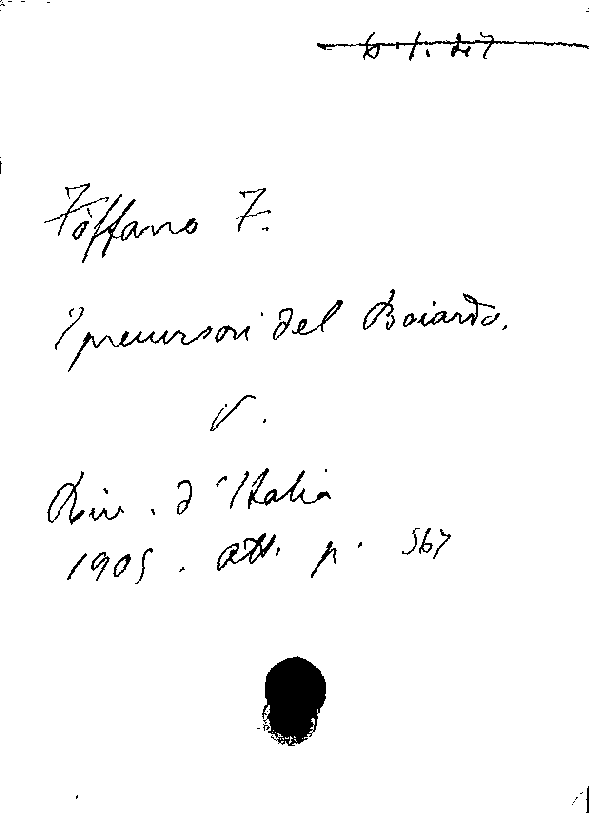 Foffano F.
I precursori del Boiardo.
V.
Riv. d'Italia
1905. Ott. p. 567